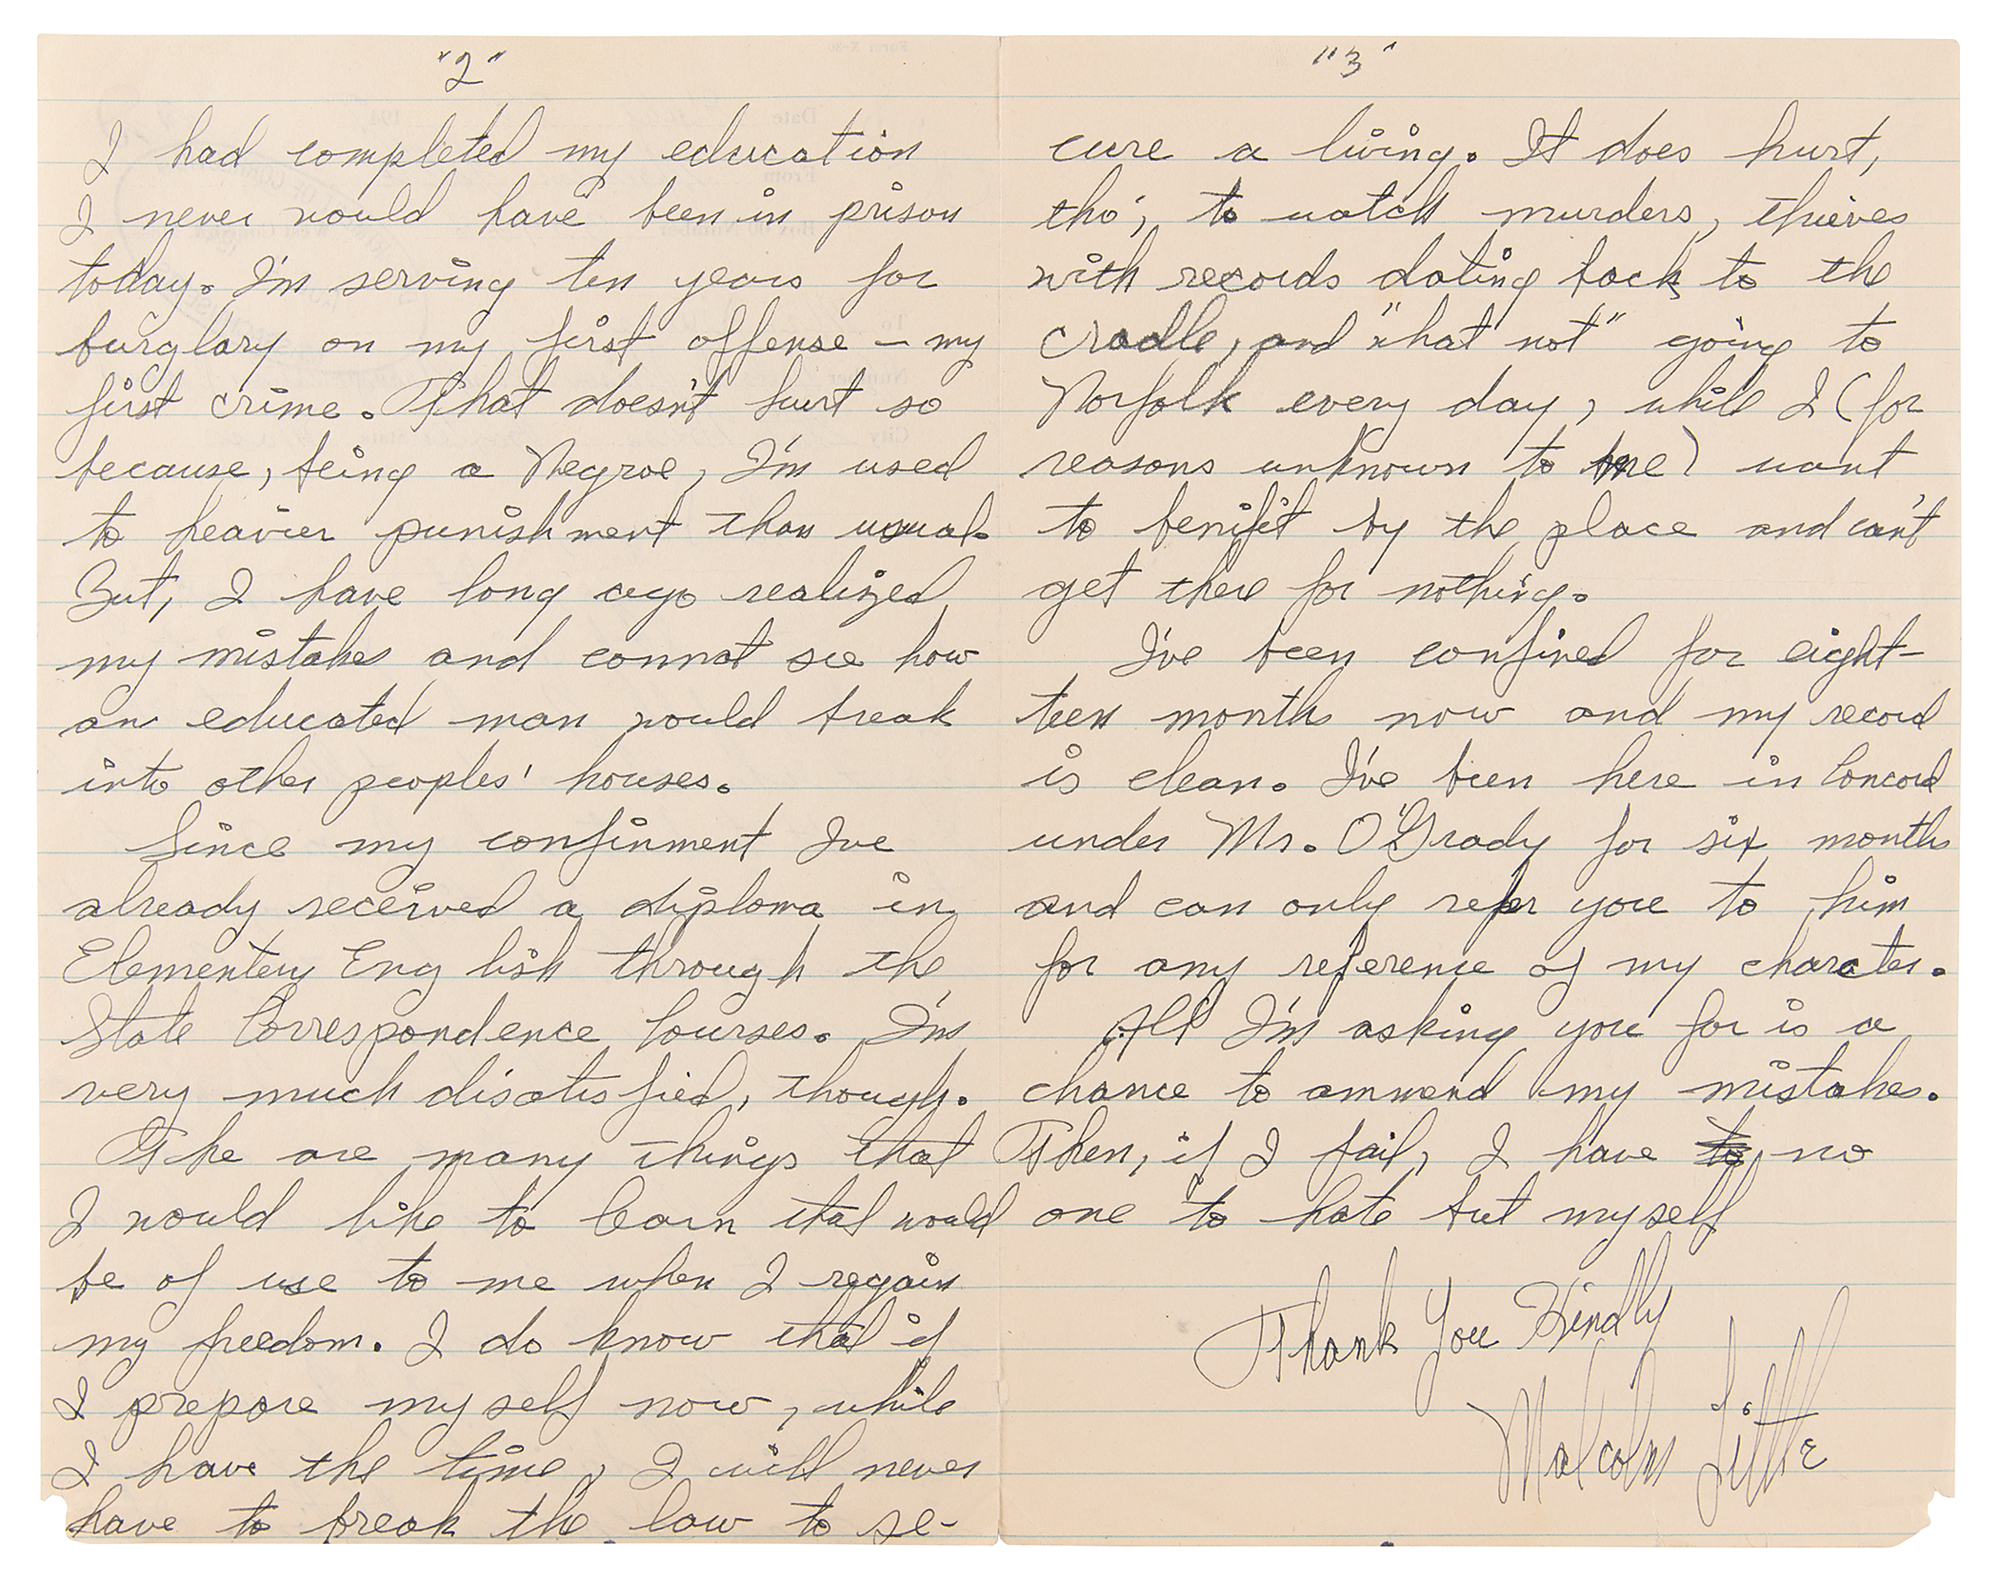 "2"
I had completed my education
I never would have been in prison
today. I'm serving ten years for
burglary on my first offense – my
first crime. That doesn't hurt so
because, being a Negroe, I'm used
to heavier punishment than usual.
But, I have long ago realized
my mistakes and connot see how
an educated man would break
into other peoples' houses.
Since my confinment I've
already received a diploma in
Elementery English through the
State Correspondence Courses. I'm
very much disatisfied, though.
The are many things that
I would like to learn that would
be of use to me when I regain
my freedom. I do know that if
I prepare myself now, while
I have the time, I will never
have to break the law to se-
"3"
cure a living. It does hurt,
tho', to watch murders, thieves
with records dating back to the
cradle, and "what not" going to
Norfolk every day, while I (for
reasons unknown to me) want
to benifit by the place and can't
get there for nothing.
I've been confined for eight-
teen months now and my record
is clean. I've been here in Concord
under Mr. O'Grady for six months
and can only refer you to him
for any reference of my charater.
All I'm asking you for is a
chance to ammend my mistakes.
Then, if I fail, I have to no
one to hate but myself
Thank You Kindly
Malcolm Little
Form X-30
Date
194
From
Box 00 Number
To
Number
City
State